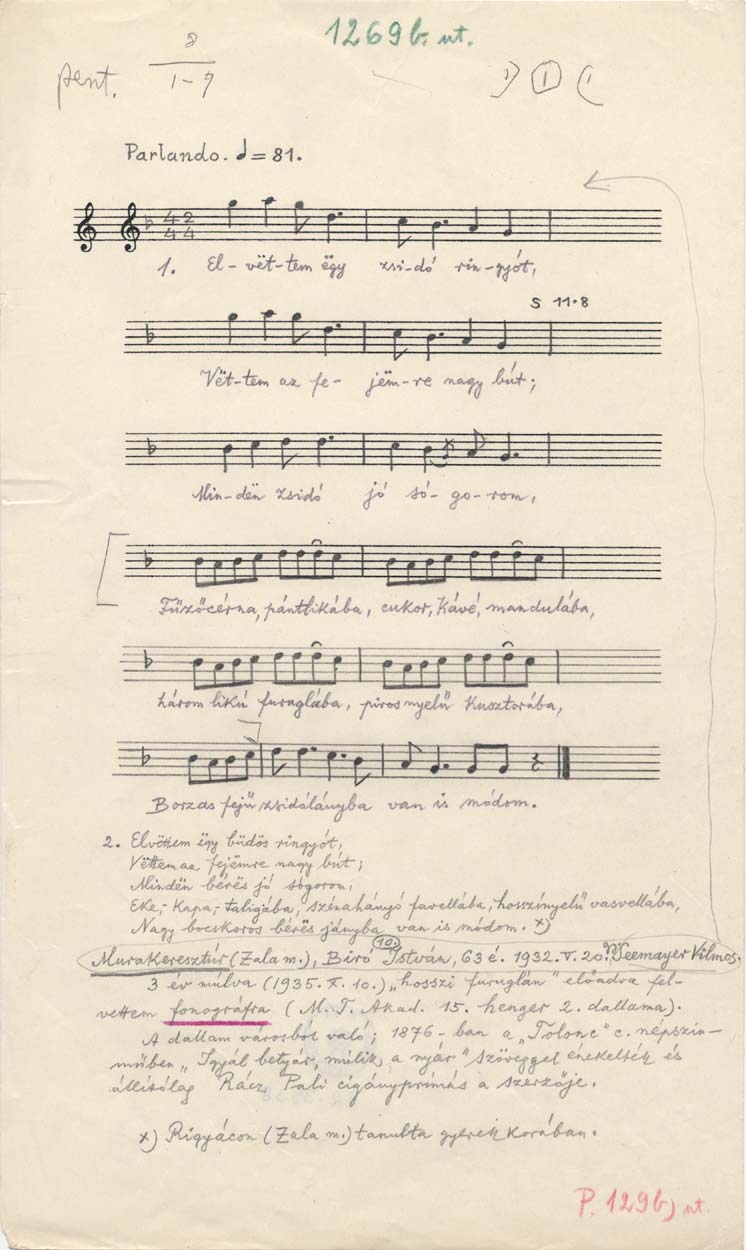 1269b. nt.
pent. 8
1-7
1) (1) (1
Parlando. ♩=81.
4 2
4 4
1. El-vët-tem ëgy zsi-dó rin-gyót,
S 11.8
Vët-tem az fe- jëm-re nagy bút;
Min-dën zsidó jó só-go-rom,
Fűzőcérna, pántlikába, cukor, kávé, mandulába,
három likú furuglába, piros nyelű kusztorába,
Borzas fejű zsidólányba van is módom.
2. Elvëttem ëgy büdös ringyót,
Vëttem az fejëmre nagy bút;
Mindën bérës jó sógorom,
Eke,- kapa,- taligába, szénahányó favellába, hosszinyelű vasvellába,
Nagy bocskoros bérës jányba van is módom. x)
Murakeresztúr (Zala m.), Biró István, 63 é. 1932. V. 20. Seemayer Vilmos.
10.
3 év múlva (1935. X. 10.) „hosszi furuglán" előadva fel-
vettem fonográfra (M. T. Akad. 15. henger 2. dallama).
A dallam városból való; 1876-ban a „Tolonc" c. népszin-
műben „Igyál betyár, múlik a nyár" szöveggel énekelték és
állitólag Rácz Pali cigányprímás a szerzője.
x) Rigyácon (Zala m.) tanulta gyerek korában.
P. 129b) nt.